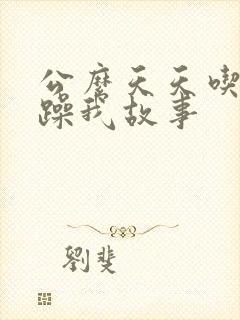 公麽天天喫
躁我故事
劉斐